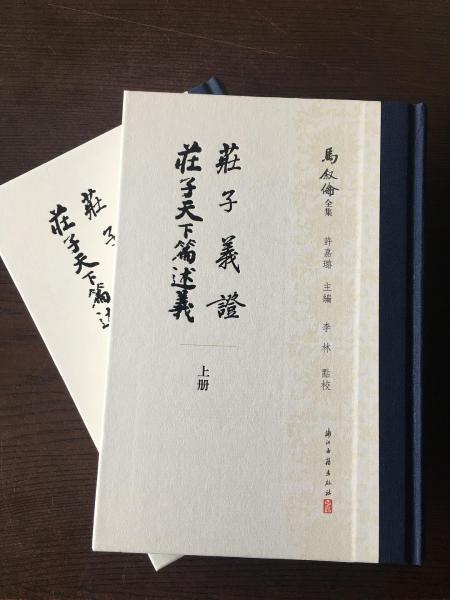 馬叙倫全集
許嘉璐 主編 李林 點校
浙江古籍出版社
莊子義證
莊子天下篇述義
上册
莊子
莊子天下篇述